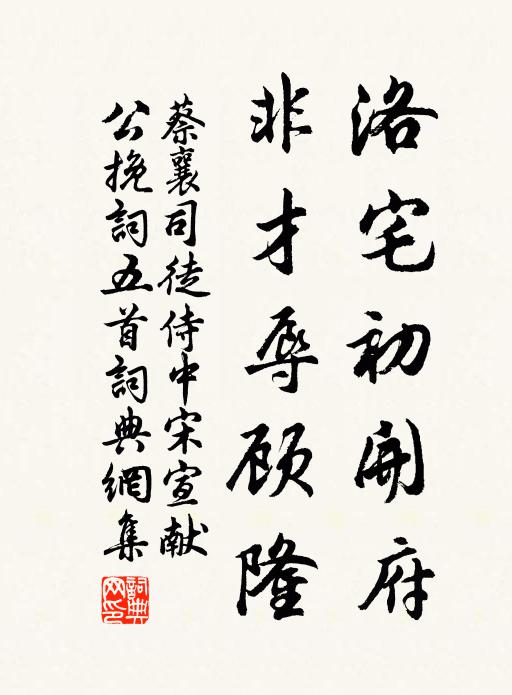 洛宅初開府
非才辱顾隆
蔡襄司徒侍中宋宣献
公挽詞五首詞典網集
詞典网印